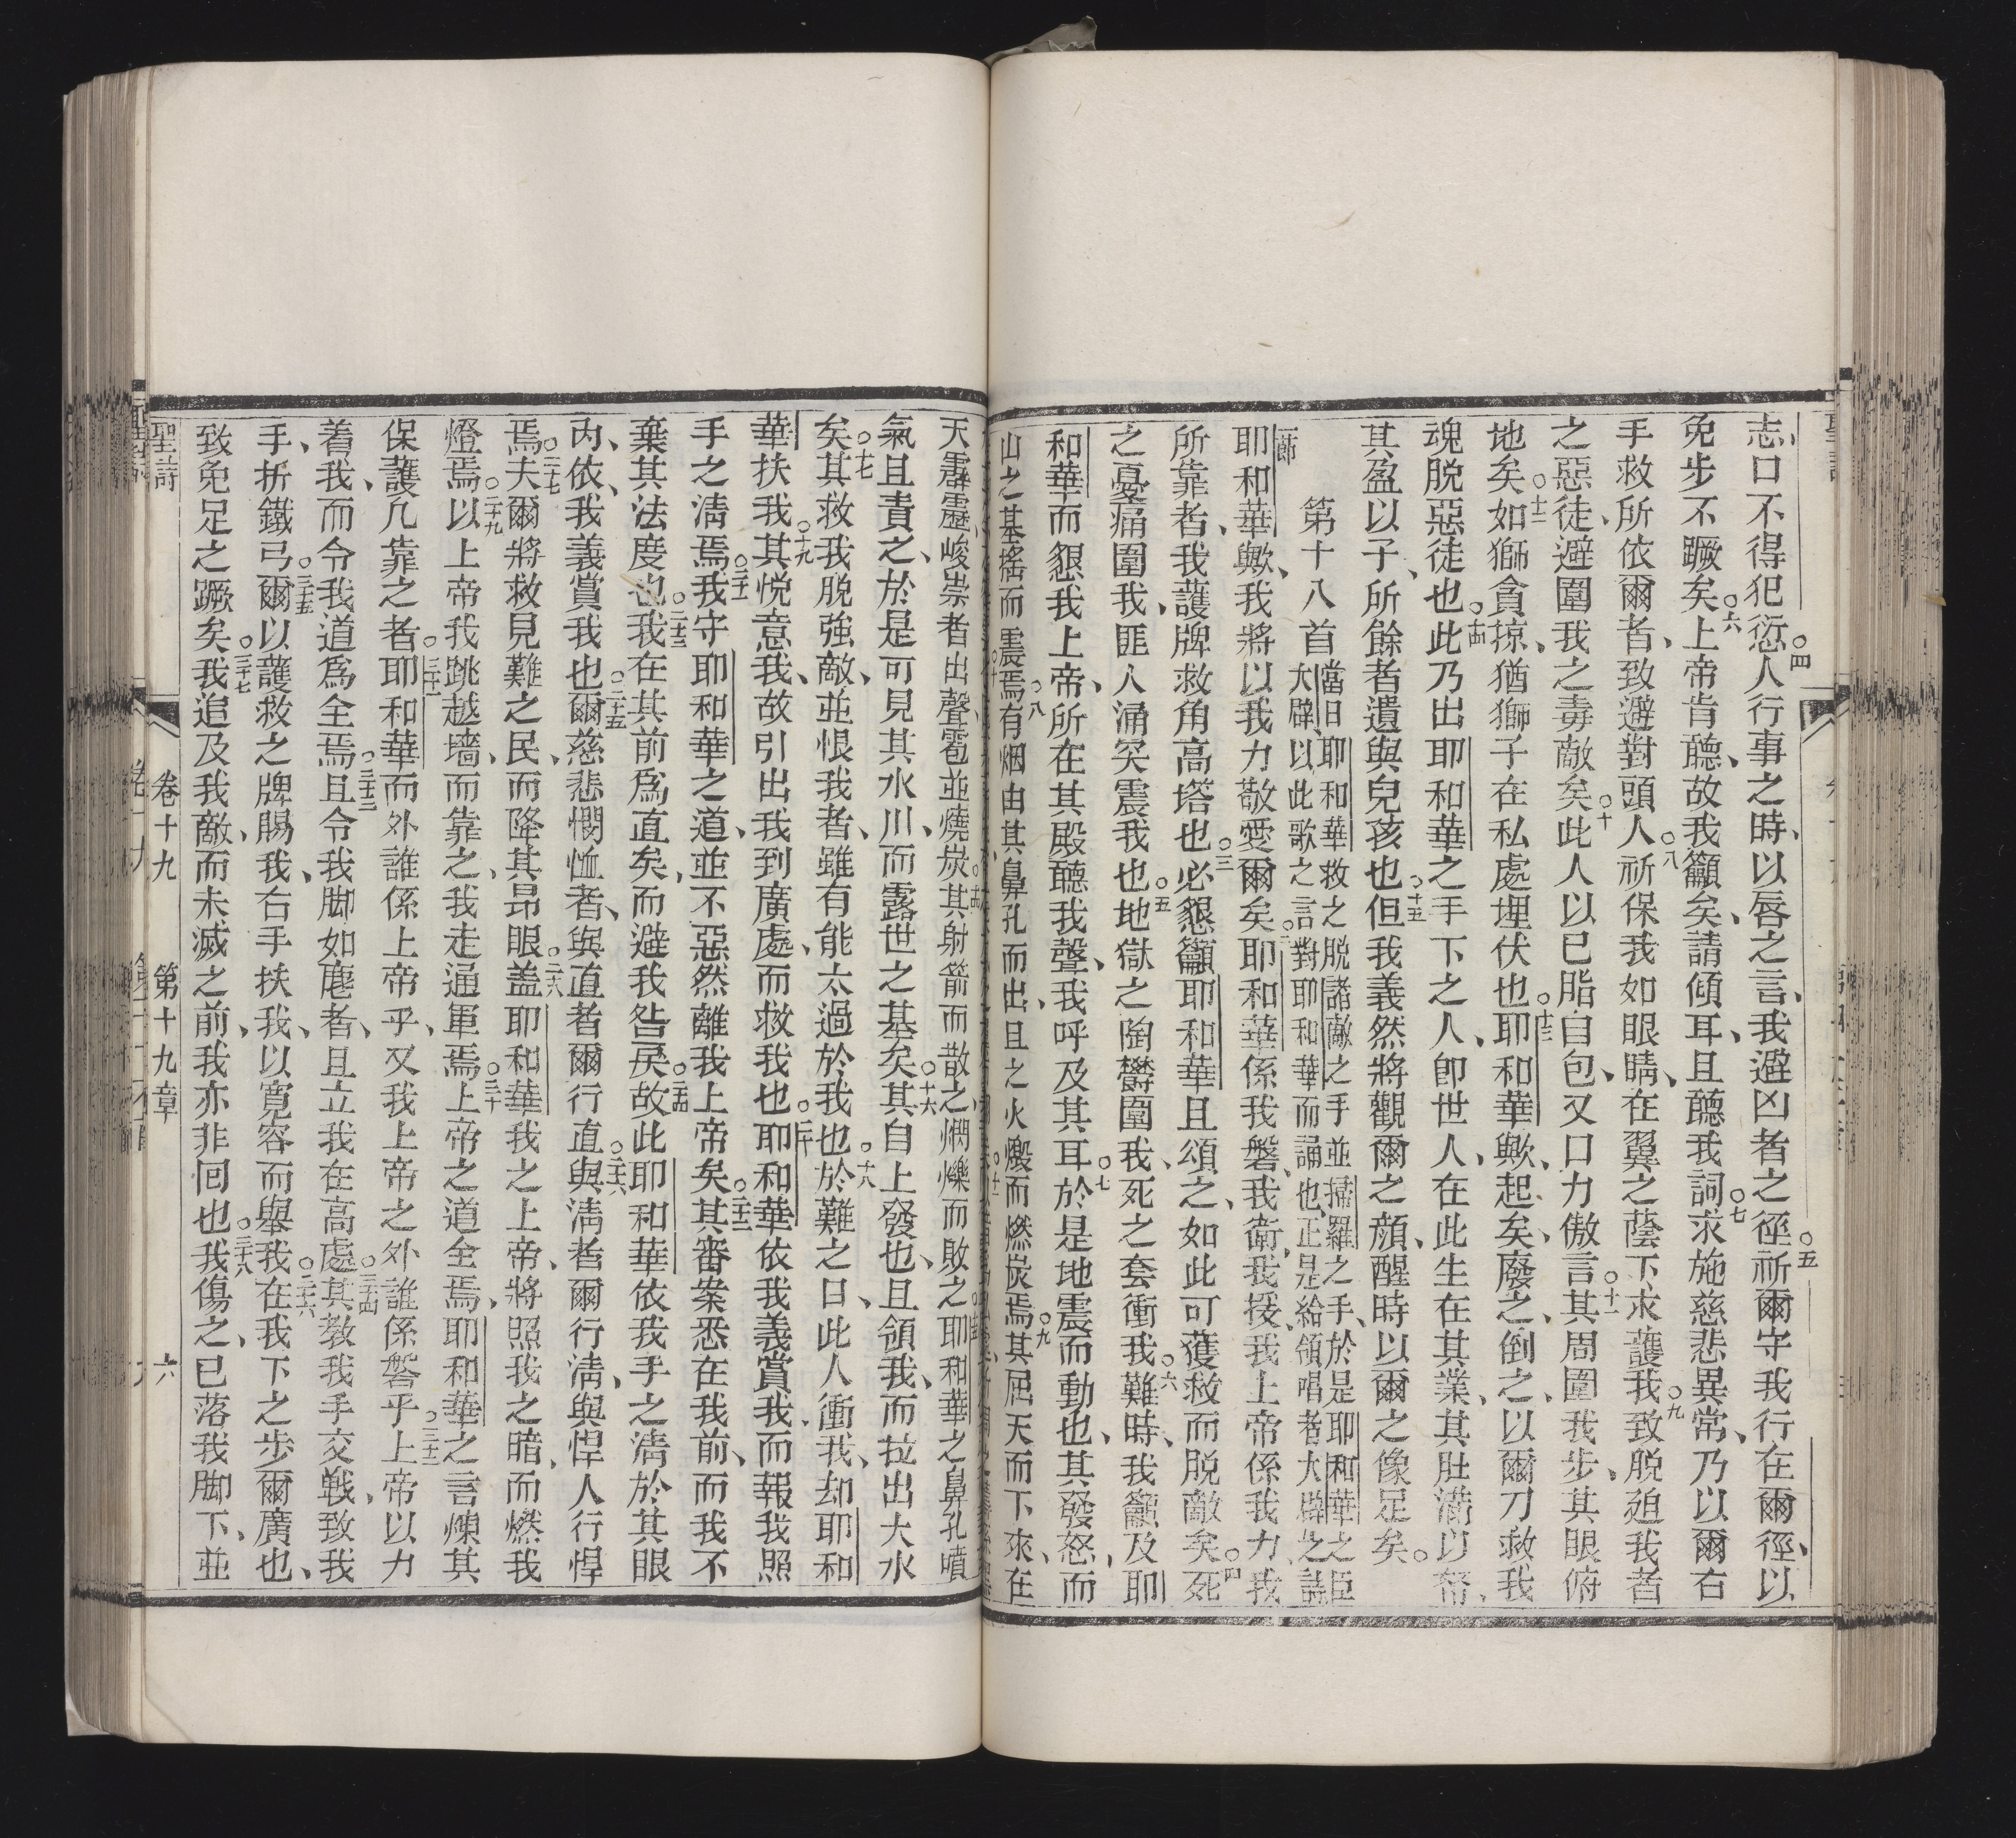 志、口不得犯愆、○四人行事之時、以唇之言、我避凶者之徑、○五祈爾守我行在爾徑、以
免步不蹶矣、○六上帝肯聽、故我籲矣、請傾耳、且聽我詞、○七求施慈悲異常、乃以爾右
手救所依爾者、致避對頭人、○八祈保我如眼睛、在翼之蔭下、求護我、○九致脫廹我者
之惡徒、避圍我之毒敵矣、○十此人以己脂自包、又口力傲言、○十一其周圍我步、其眼俯
地矣、○十二如獅貪掠、猶獅子在私處埋伏也、○十三耶和華歟、起矣、廢之、倒之、以爾刀救我
魂脫惡徒也、○十四此乃出耶和華之手下之人、即世人、在此生在其業、其肚滿以帑、
其盈以子、所餘者遺與兒孩也、○十五但我義然將觀爾之顏、醒時以爾之像足矣。
第十八首 當日耶和華救之脫諸敵之手並掃羅之手、於是耶和華之臣
大闢、以此歌之言對耶和華而誦也、正是給領唱者大闢之詩
一節 耶和華歟、我將以我力敬愛爾矣、○二耶和華係我磐、我衛、我援、我上帝係我力、我
所靠者、我護牌救角高塔也、○三必懇籲耶和華且頌之、如此可獲救而脫敵矣、○四死
之憂痛圍我、匪人涌突震我也、○五地獄之陶欝圍我、死之套衝我、○六難時、我籲及耶
和華而懇我上帝、所在其殿聽我聲、我呼及其耳、○七於是地震而動也、其發怒、而
山之基搖而震焉、○八有烟由其鼻孔而出、且之火燬而燃炭焉、○九其屈天而下來、在
天霹靂、峻崇者出聲、雹並燒炭、○十四其射箭而散之、燜爍而敗之、○十五耶和華之鼻孔噴
氣且責之、於是可見其水川、而露世之基矣、○十六其自上發也、且領我、而拉出大水
矣、○十七其救我脫強敵、並恨我者、雖有能太過於我也、○十八於難之日、此人衝我、却耶和
華扶我、○十九其悅意我、故引出我到廣處、而救我也、○二十耶和華依我義賞我、而報我照
手之淸焉、○二十一我守耶和華之道、並不惡然離我上帝矣、○二十二其審案悉在我前、而我不
棄其法度也、○二十三我在其前爲直矣、而避我咎戾、○二十四故此耶和華依我手之淸於其眼
內、依我義賞我也、○二十五爾慈悲憫恤者、與直者爾行直、○二十六與淸者爾行淸、與悍人行悍
焉、○二十七夫爾將救見難之民、而降其昂眼、○二十八蓋耶和華我之上帝、將照我之暗、而燃我
燈焉、○二十九以上帝我跳越墻、而靠之、我走通軍焉、○三十上帝之道全焉、耶和華之言煉其
保護凡靠之者、○三十一耶和華而外誰係上帝乎、又我上帝之外誰係磐乎、○三十二上帝以力
着我、而令我道爲全焉、○三十三且令我脚如麀者、且立我在高處、○三十四其教我手交戰、致我
手、折鐵弓、○三十五爾以護救之牌賜我、右手扶我、以寬容而舉我、○三十六在我下之步爾廣也、
致免足之蹶矣、○三十七我追及我敵、而未滅之前、我亦非回也、○三十八我傷之、已落我脚下、並
聖詩 卷十九 第十九章 六